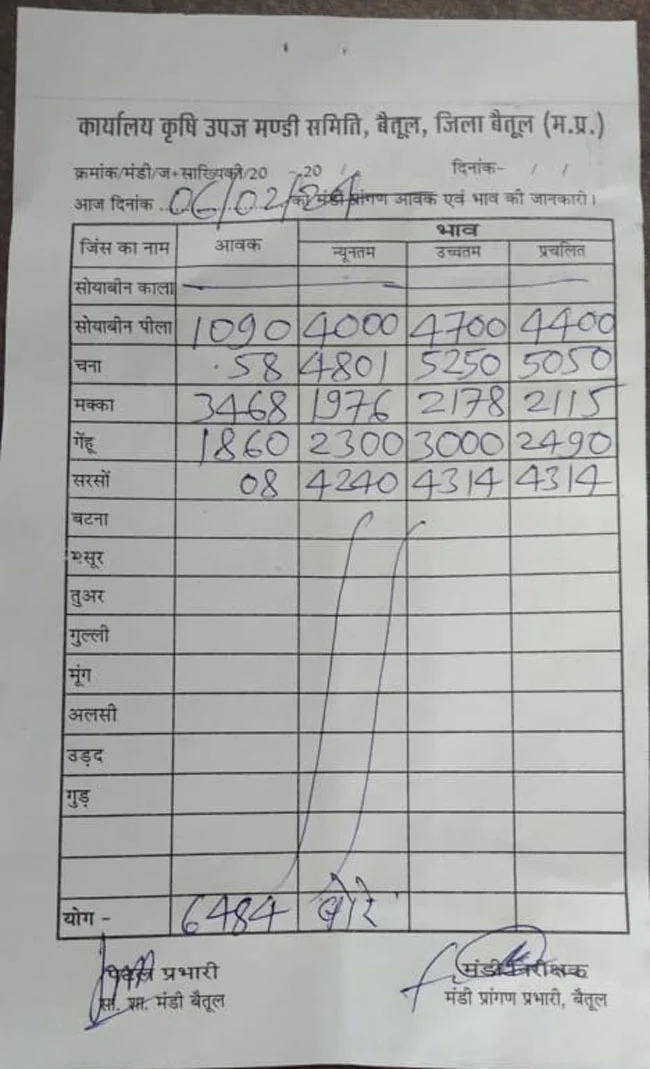 कार्यालय कृषि उपज मण्डी समिति, बैतूल, जिला बैतूल (म.प्र.)
क्रमांक/मंडी/ज+सांख्यिकी/20 -20 / दिनांक- / /
आज दिनांक 06/02/24 को मंडी प्रांगण आवक एवं भाव की जानकारी।
जिंस का नाम आवक भाव
न्यूनतम उच्चतम प्रचलित
सोयाबीन काला
सोयाबीन पीला 1090 4000 4700 4400
चना 58 4801 5250 5050
मक्का 3468 1976 2178 2115
गेंहू 1860 2300 3000 2490
सरसों 08 4240 4314 4314
बटना
मसूर
तुअर
गुल्ली
मूंग
अलसी
उड़द
गुड़
योग - 6484 बोरे
प्रभारी मंडी निरीक्षक
सा. शा. मंडी बैतूल मंडी प्रांगण प्रभारी, बैतूल